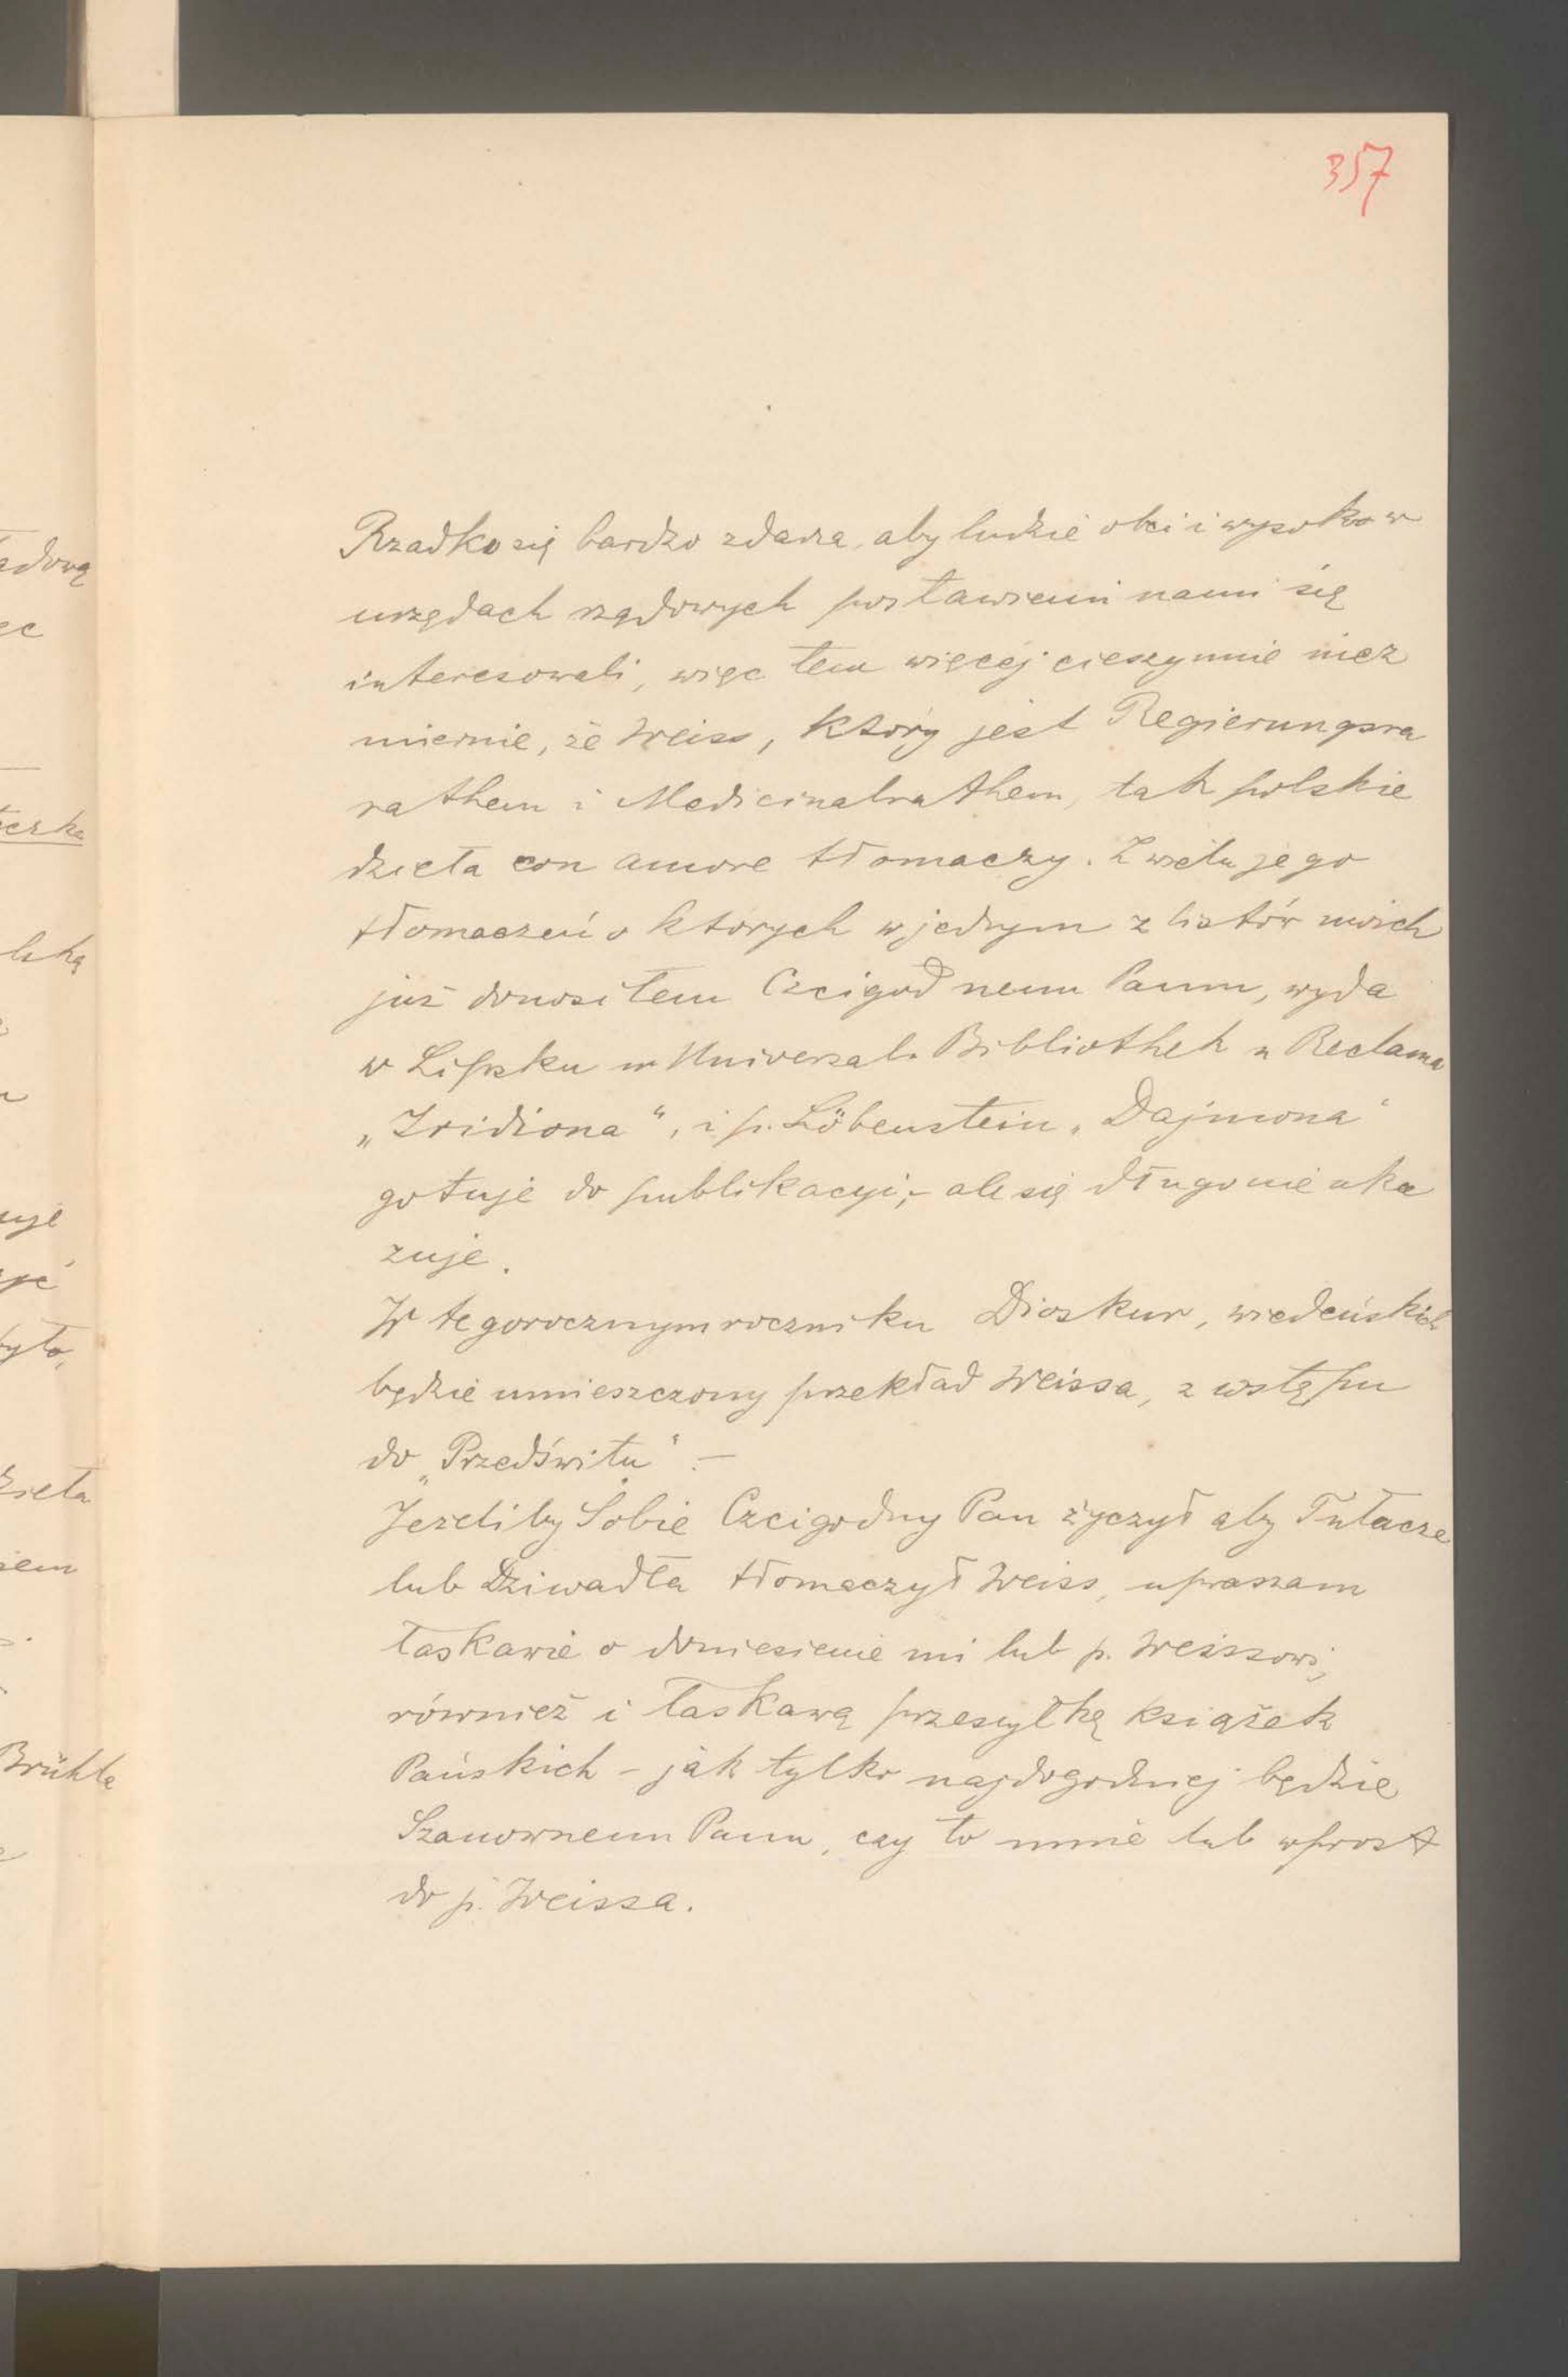 357
Rzadko się bardzo zdarza, aby ludzie obci i wysoko w
urzędach rządowych postawieni nami się
interesowali, więc tem więcej cieszy mnie niez
miernie, że Weiss, który jest Regierungsra
rathem i Medicinalrathem, tak polskie
dzieła con amore tłomaczy. Z wielu jego
tłomaczeń o ktorych w jednym z listów moich
już donosiłem Czcigodnemu Panu, wyda
w Lipsku w Universal. Bibliothek u Reclama
„Iridiona“, i p. Löbenstein „Dajmona“
gotuje do publikacyi,- ale się długo nie uka
zuje.
W tegorocznym roczniku Dioskur, wiedeńskich
będzie umieszczony przekład Weissa, z wstępu
do „Przedświtu“ .—
Jezeliby Sobie Czcigodny Pan życzył aby Tułacze
lub Dziwadła tłomaczył Weiss, upraszam
łaskawie o doniesienie mi lub p. Weissowi,
również i łaskawą przesyłkę książek
Pańskich – jak tylko najdogodniej będzie
Szanownemu Panu, czy to mnie lub wprost
do p. Weissa.
ądową
ec
lską
uje
yć
było,
dzieła
iem
Brühla